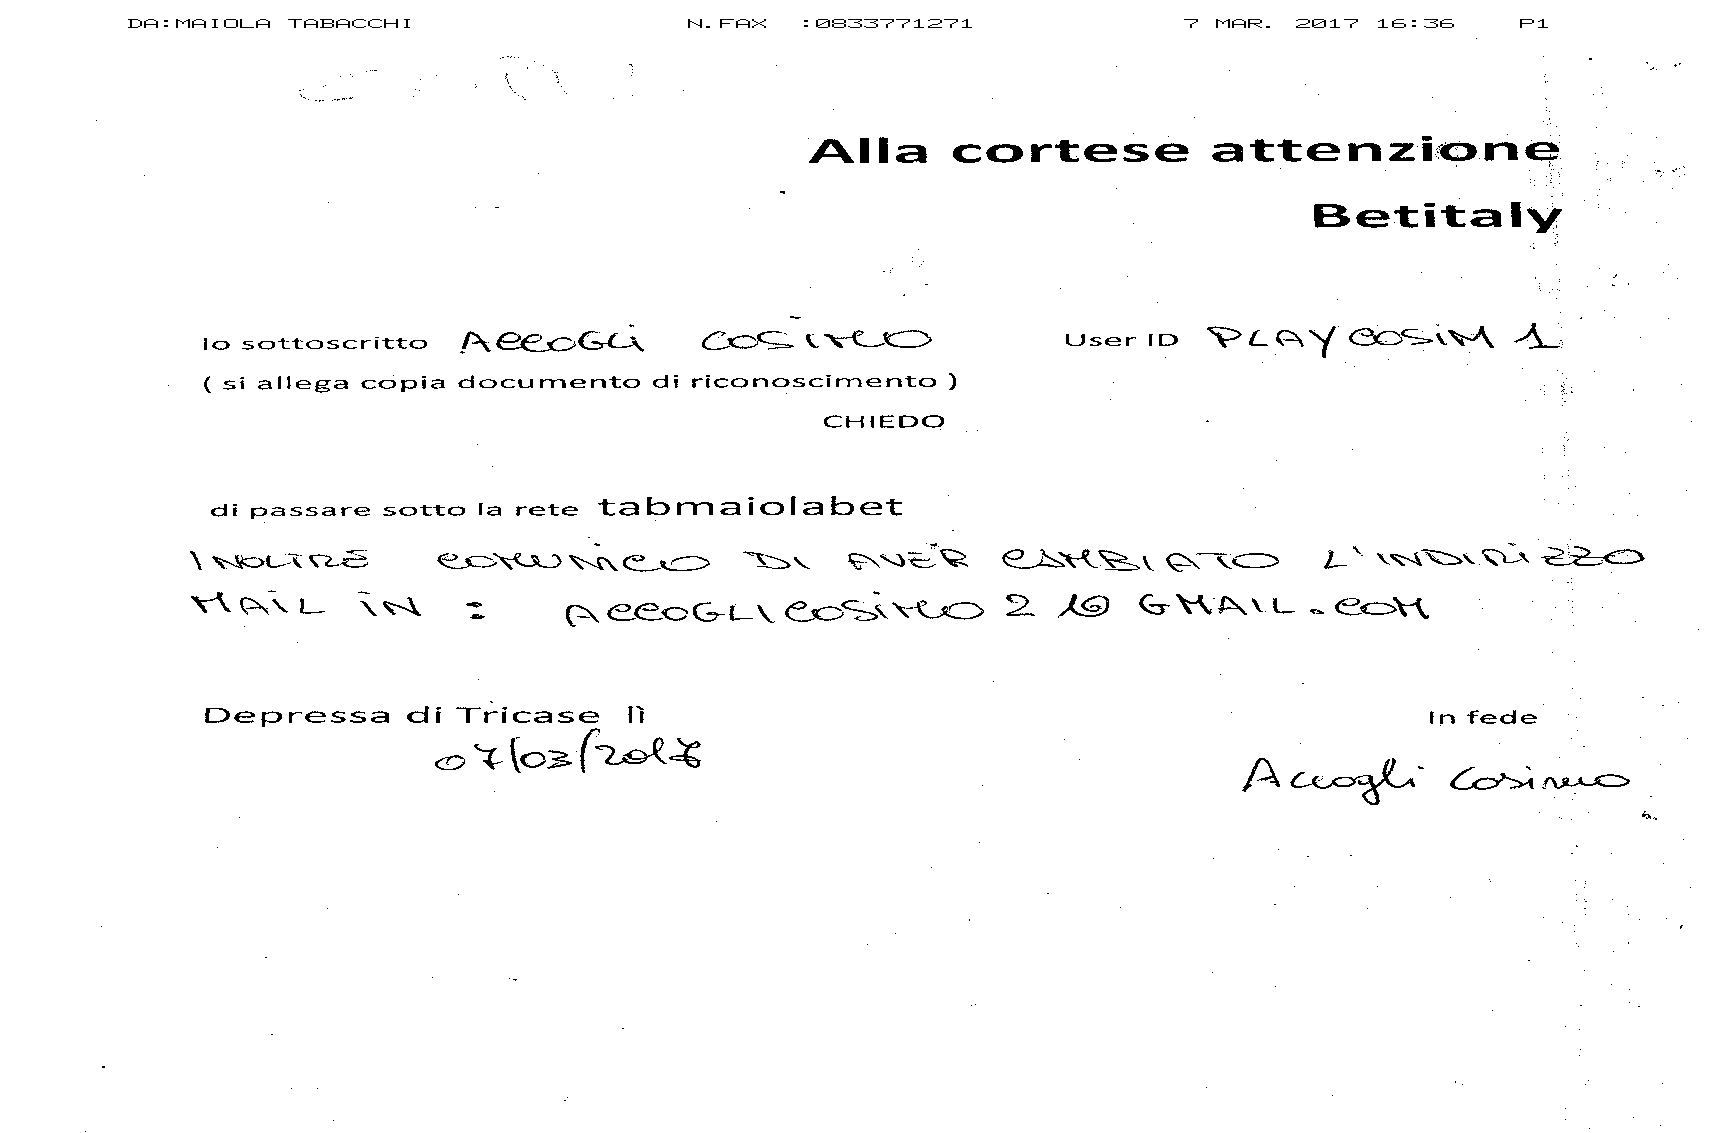 DA:MAIOLA TABACCHI N.FAX :0833771271 7 MAR. 2017 16:36 P1
Alla cortese attenzione
Betitaly
Io sottoscritto ACCOGLI COSIMO User ID PLAYCOSIM1
( si allega copia documento di riconoscimento )
CHIEDO
di passare sotto la rete tabmaiolabet
INOLTRE COMUNICO DI AVER CAMBIATO L'INDIRIZZO
MAIL IN : ACCOGLICOSIMO2 1@GMAIL.COM
Depressa di Tricase lì In fede
07/03/2017 Accogli Cosimo